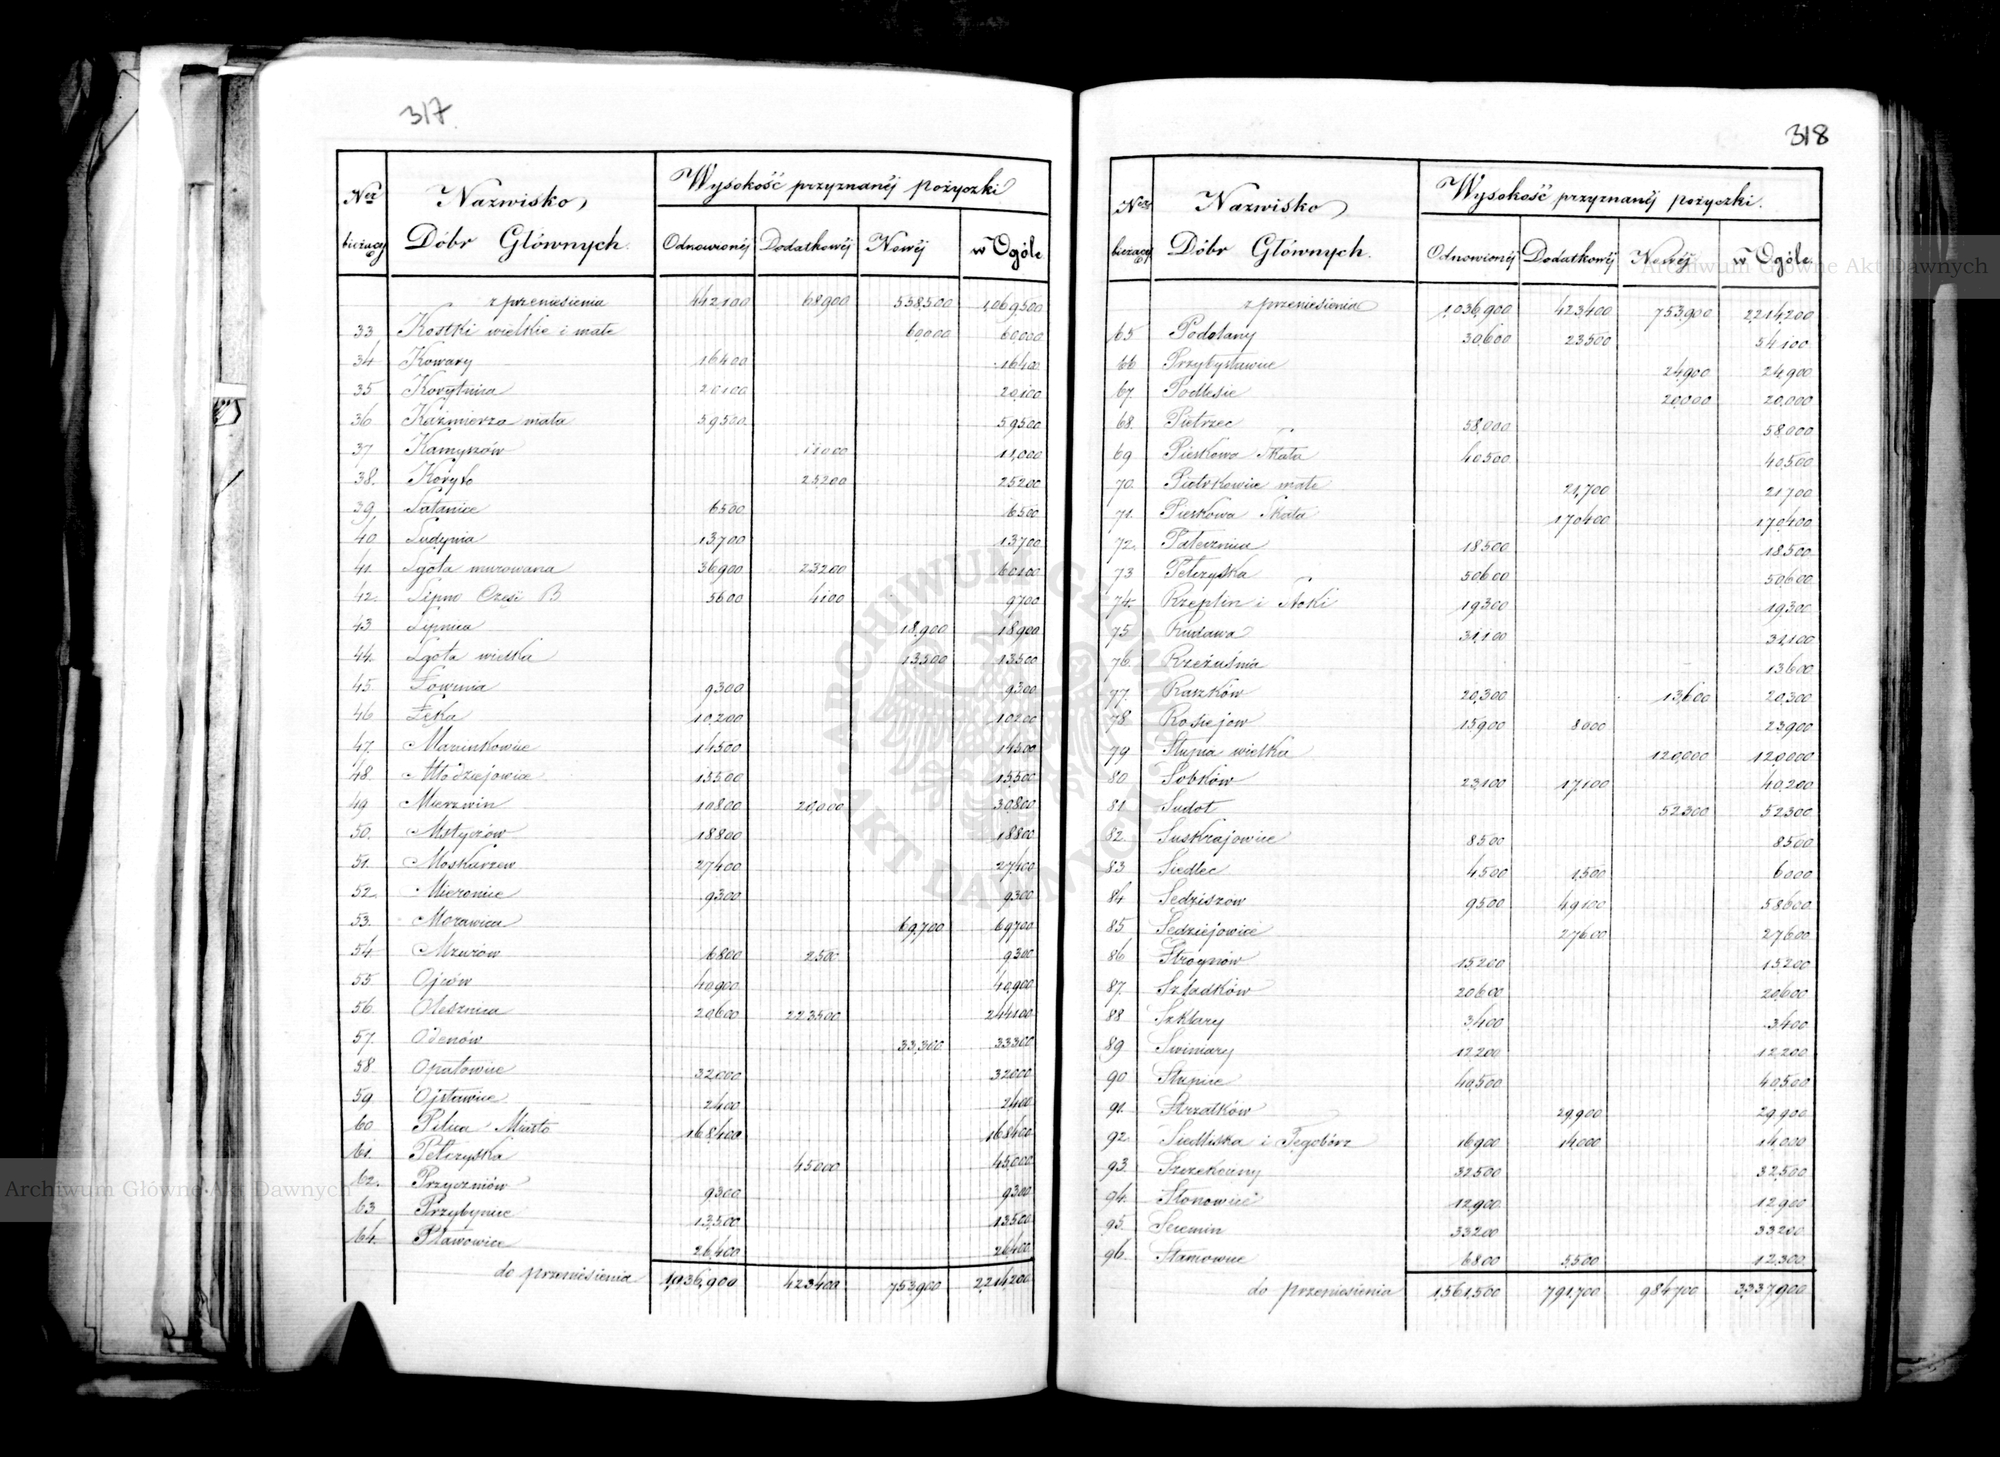 317.
Nr bieżący Nazwisko Dóbr Głównych. Wysokość przyznanéj pożyczki
Odnowionéj Dodatkowéj Nowéj w Ogóle
z przeniesienia 442,100 68,900 558,500 1,069,500
33 Kostki wielkie i małe 60,000 60,000
34 Kowary 16400 16400
35 Korytnica 20100 20,100
36 Kaźmierza mała 59500 59500
37 Kamyszów 11000 11,000
38. Koryto 25200 25200
39. Łatanice 6500 6500
40 Ludynia 13700 13700
41. Lgota murowana 36900 23200 60100
42. Lipno Część B 5600 4100 9700
43 Lipnica 18,900 18900
44. Lgota wielka 13500 13500
45. Łownia 9300 9300
46. Łęka 10,200 10200
47. Marcinkowice 14500 14500
48. Młodziejowice 15500 15,500
49 Mierzwin 10800 20,000 30,800
50. Mstyczów 18800 18800
51. Moskarzew 27400 27,400
52. Mieronice 9300 9300
53. Morawica 69,700 69700
54. Mzurów 6800 2500 9300
55 Ojców 40,900 40,900
56. Olesznica 20600 223500 244100
57. Odonów 33,300 33300
58. Opatowice 32000 32000
59. Ojsławice 2400 2400
60. Pilica Miasto 168400 168400
61. Pełczyska 45000 45,000
62. Przyczniów 9300 9300
63 Przybynice 13,500 13500
64. Pławowice 26,400 26,400
do przeniesienia 1,036,900 423400 753900 2,214,200
318
Nr bieżący Nazwisko Dóbr Głównych. Wysokość przyznanéj pożyczki.
Odnowionéj Dodatkowéj Nowéj w Ogóle.
z przeniesienia 1,036,900 423400 753,900 2,214,200
65 Podolany 30,600 23500 54100
66 Przybysławice 24,900 24,900
67. Podlesie 20,000 20,000
68. Pietrzec 58,000 58,000
69 Pieskowa Skała 40500 40500
70. Piotrkowice małe 21,700 21700
71. Pieskowa Skała 170400 170400
72. Paleznica 18500 18500
73 Pełczyska 50600 50,600
74. Rzeplin i Stoki 19300 19300
75 Rudawa 31,100 31,100
76. Rzeżuśnia 13600
77. Raszków 20,300 13,600 20,300
78. Rosiejow 15900 8000 23900
79 Słupia wielka 120,000 120,000
80 Sobków 23,100 17,100 40,200
81. Sudoł 52300 52300
82. Suskrajowice 8500 8500
83 Siedlec 4500 1,500 6000
84 Sędziszów 9500 49100 58600
85 Sędziejowice 27600 27600
86 Stroynów 15200 15200
87. Szładków 20600 20,600
88 Szklary 3,400 3,400
89 Swiniary 12200 12,200
90 Słupice 40,500 40,500
91. Strzałków 29,900 29,900
92. Siedliska i Tęgobórz 16900 14,000 14,000
93. Szczekociny 32500 32,500
94. Słonowice 12,900 12,900
95. Seremin 33200 33200
96. Sławowice 6800 5,500 12,300
do przeniesienia 1,561,500 791,700 984,700 3,337,900
Archiwum Główne Akt Dawnych
Archiwum Główne Akt Dawnych
ARCHIWUM GŁÓWNE AKT DAWNYCH